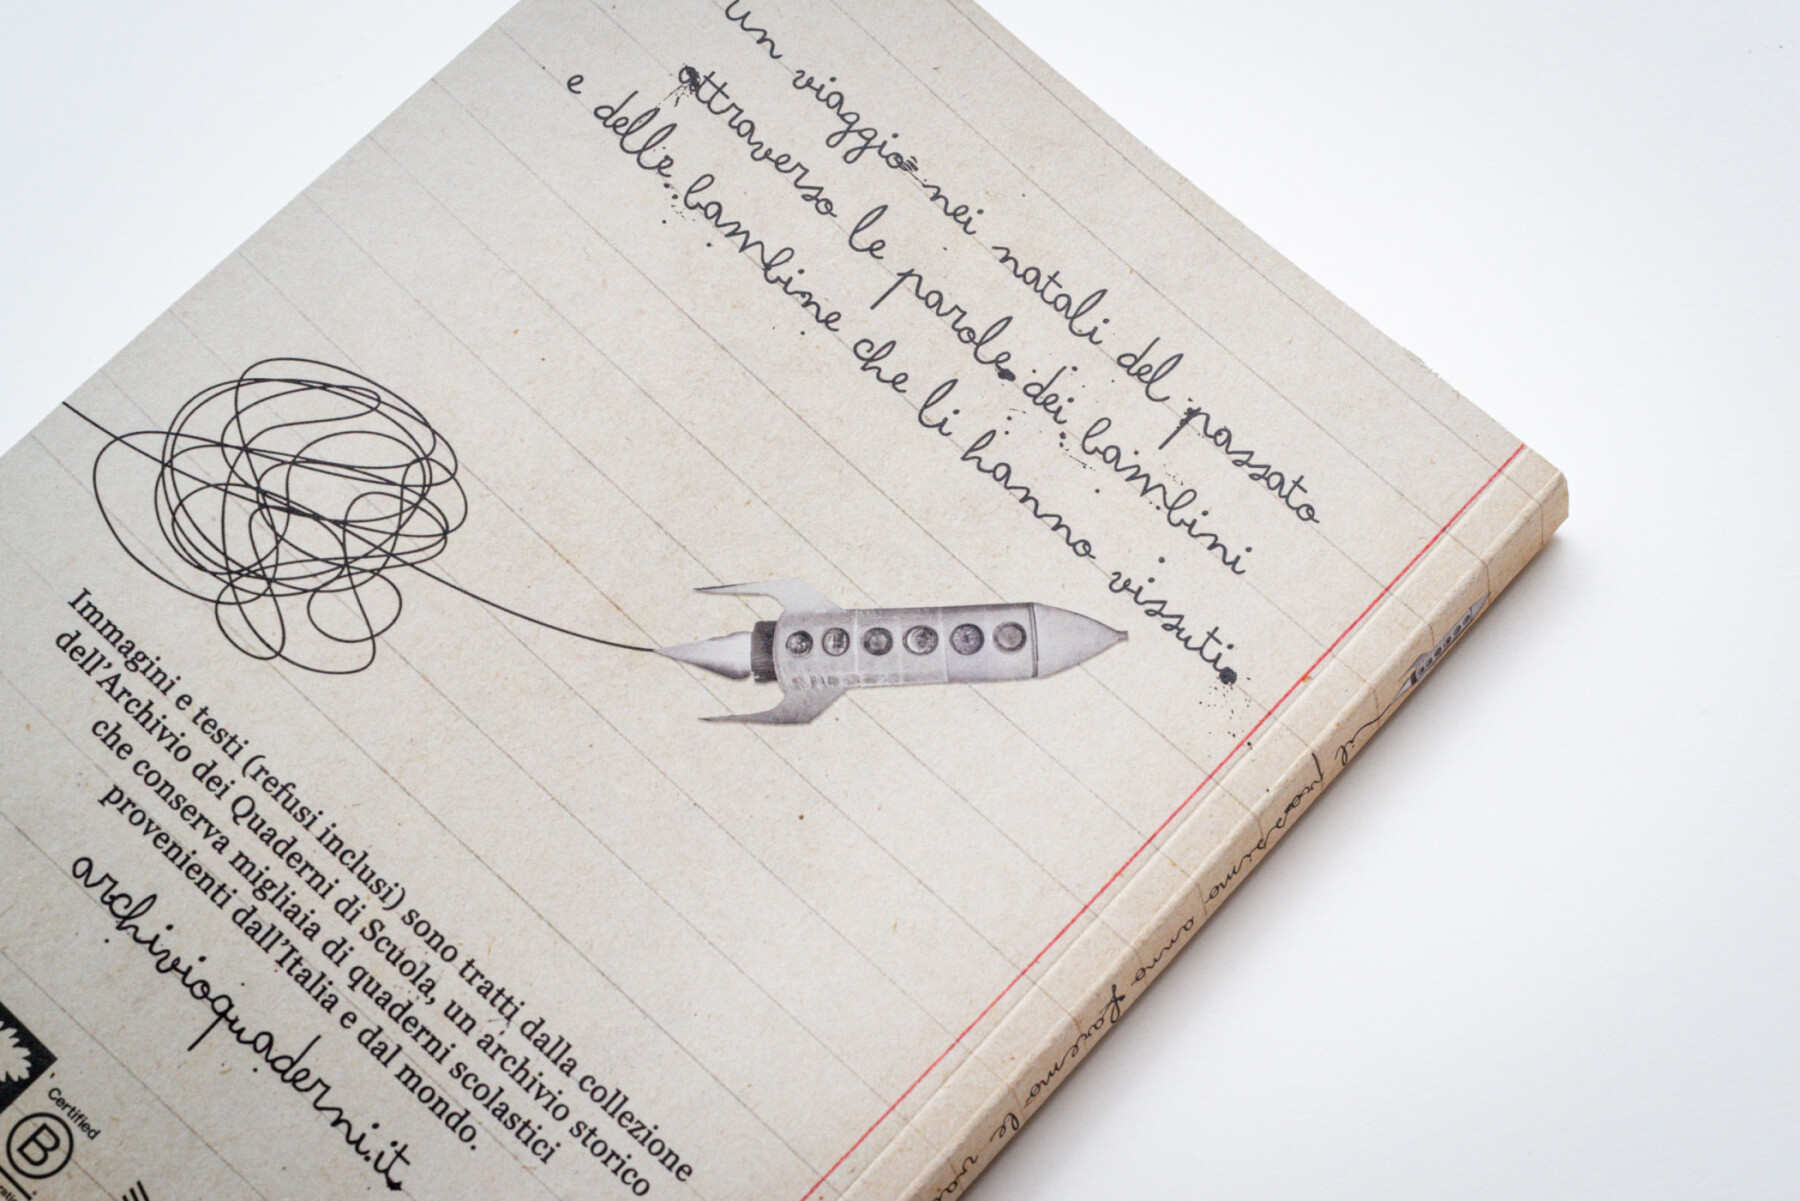 un viaggio nei natali del passato
attraverso le parole dei bambini
e delle bambine che li hanno vissuti.
Immagini e testi (refusi inclusi) sono tratti dalla collezione
dell'Archivio dei Quaderni di Scuola, un archivio storico
che conserva migliaia di quaderni scolastici
provenienti dall'Italia e dal mondo.
archivioquaderni.it
Certified
B
il prossimo anno faremo le